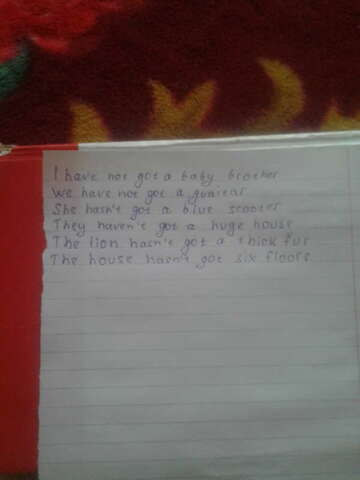 I have not got a baby brother
We have not got a guaitar
She hasn't got a blue scooter
They haven't got a huge house
The lion hasn't got a thick fur
The house hasn't got six floors